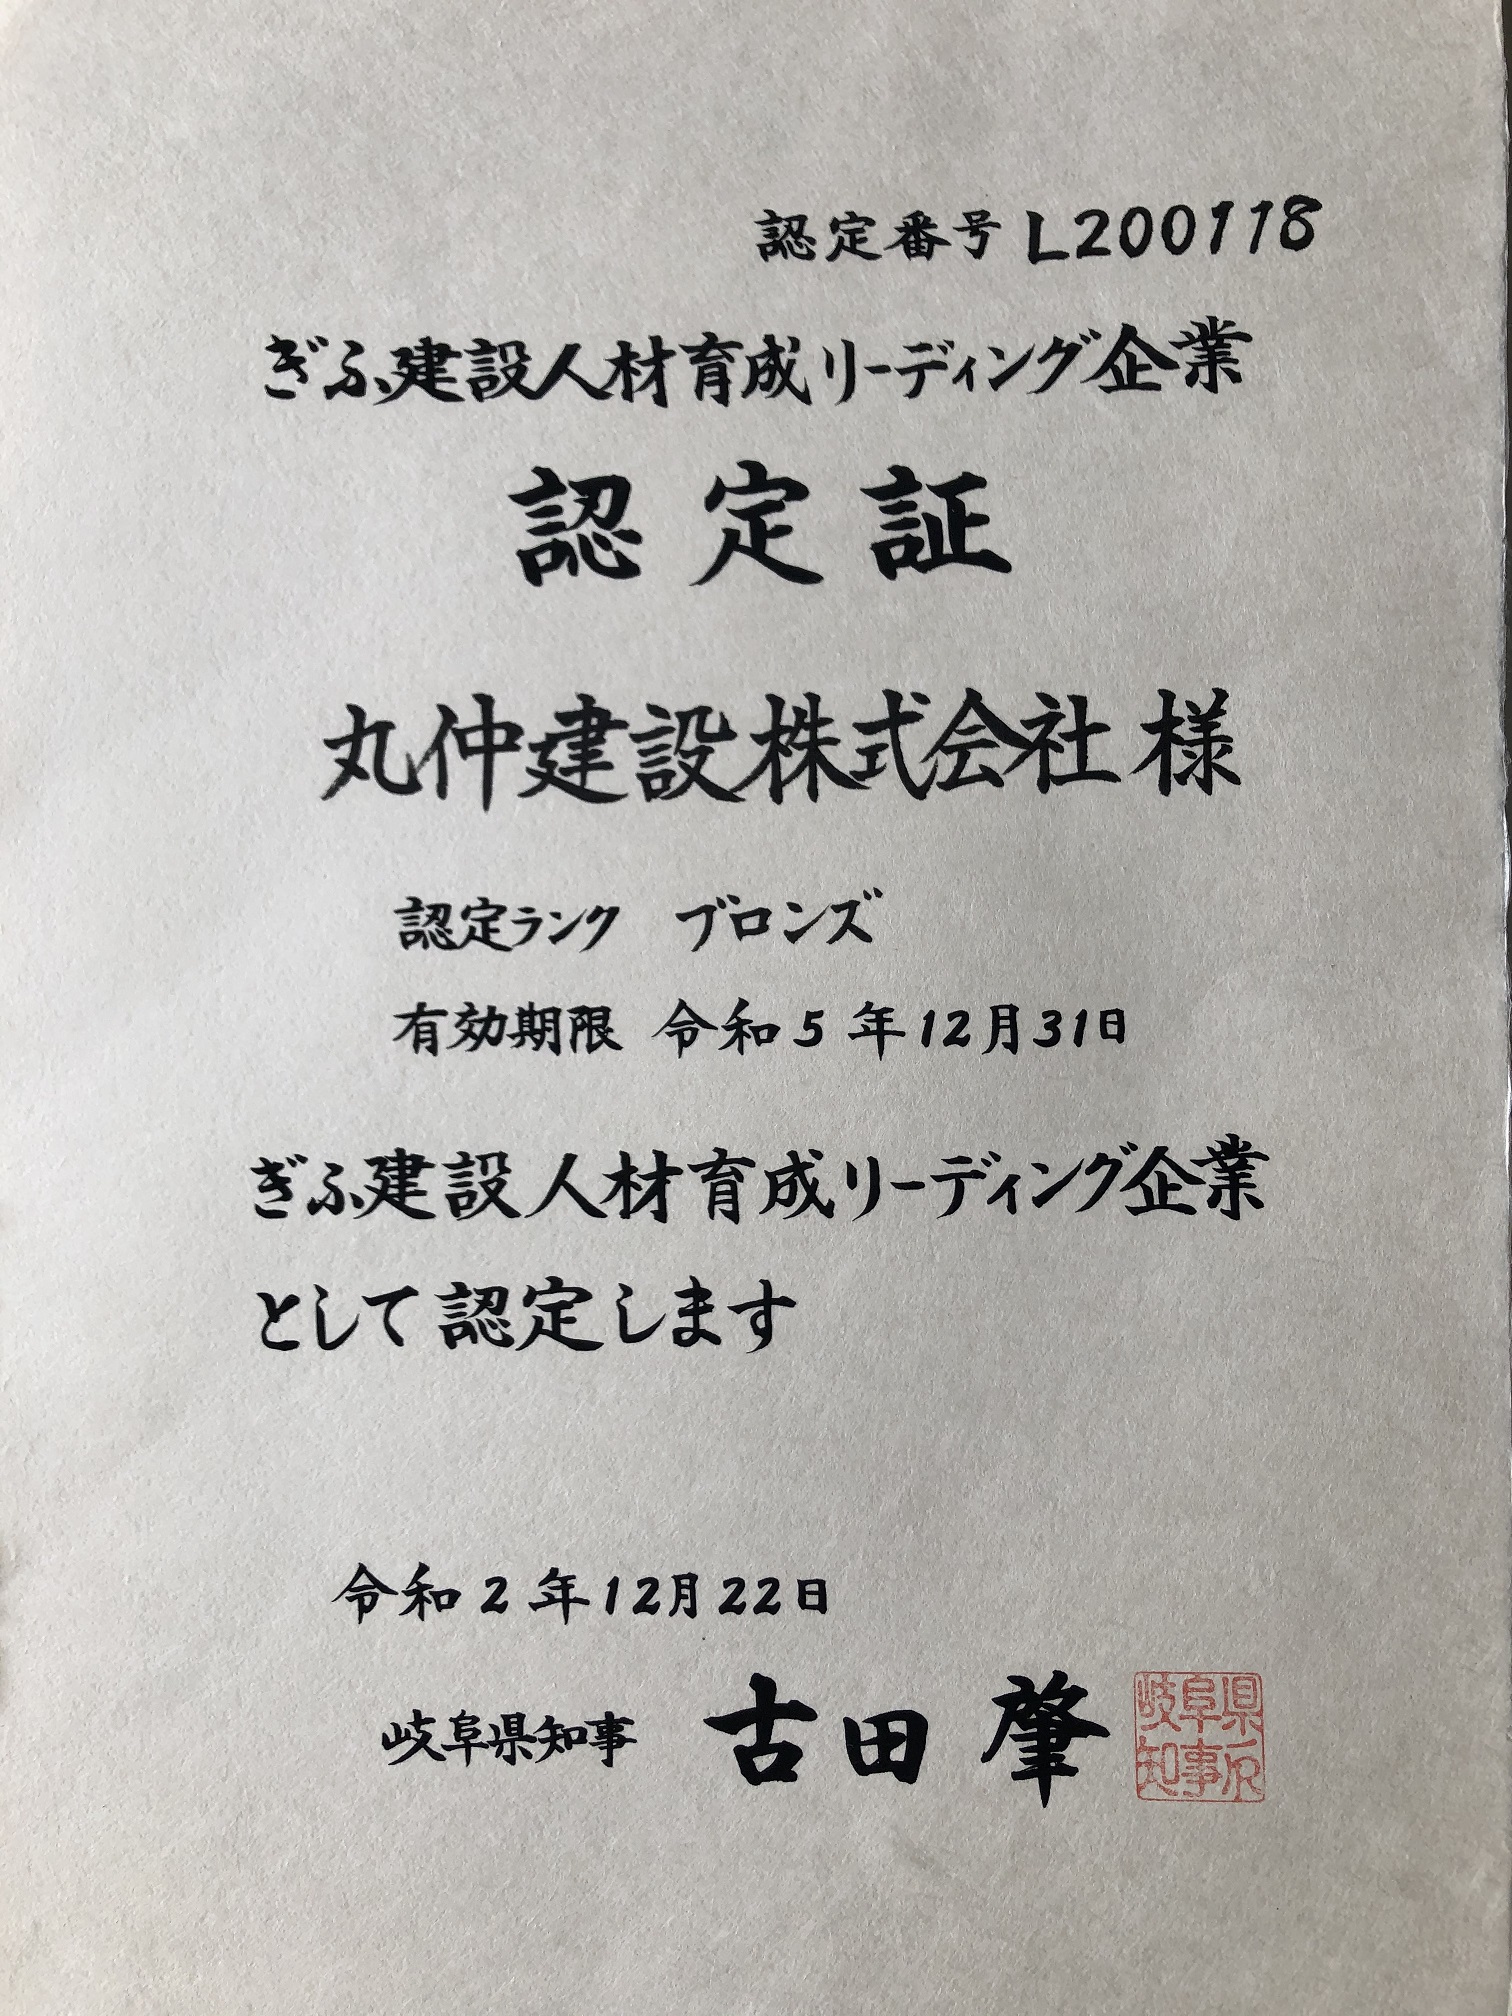 認定番号 L200118
ぎふ建設人材育成リーディング企業
認定証
丸仲建設株式会社 様
認定ランク ブロンズ
有効期限 令和5年12月31日
ぎふ建設人材育成リーディング企業
として認定します
令和2年12月22日
岐阜県知事 古田 肇
岐阜県
知事印